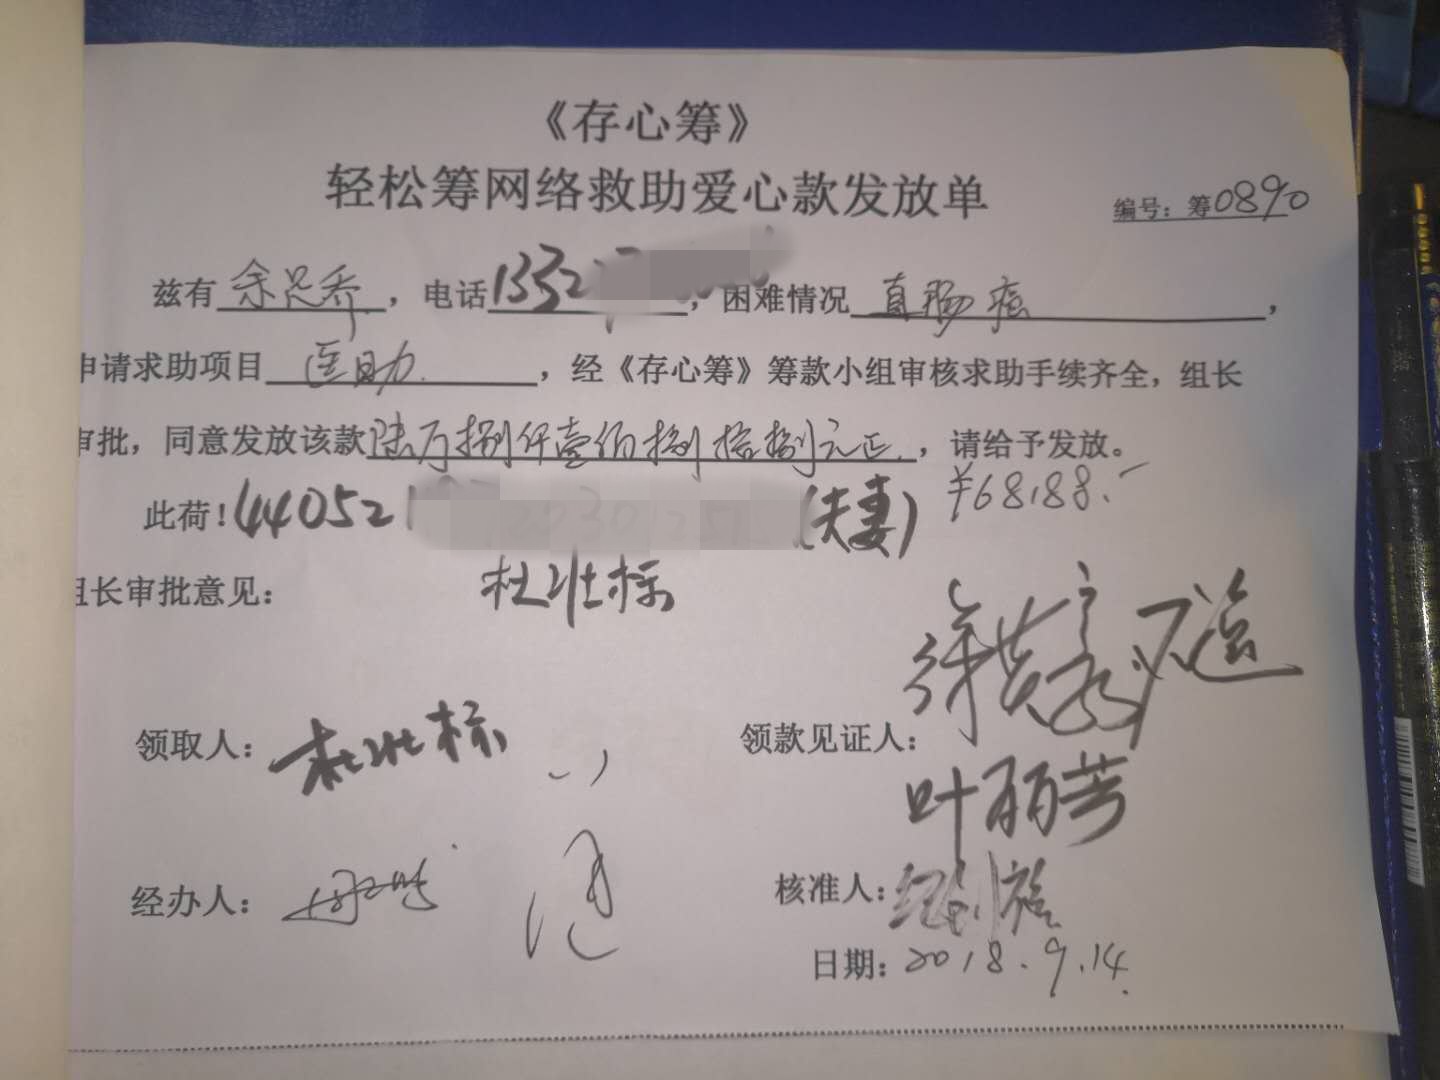 《存心筹》
轻松筹网络救助爱心款发放单
编号：筹0890
兹有余足乔，电话1352，困难情况直肠癌，
申请求助项目医助，经《存心筹》筹款小组审核求助手续齐全，组长
审批，同意发放该款陆万捌仟壹佰捌拾捌元正，请给予发放。
¥68188.-
此荷！44052(夫妻)
组长审批意见：杜壮标
领取人：杜壮标
领款见证人：
叶丽芳
经办人：
核准人：
日期：2018.9.14.